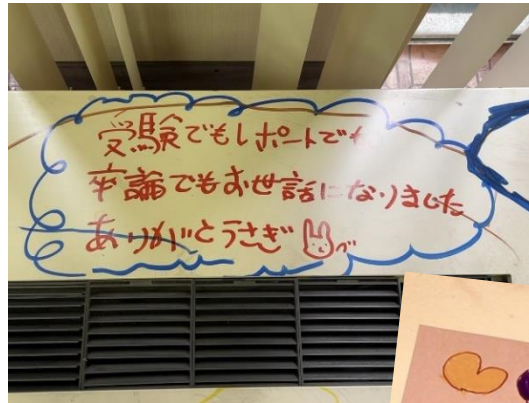 受験でもレポートでも
卒論でもお世話になりました
ありがとうさぎ